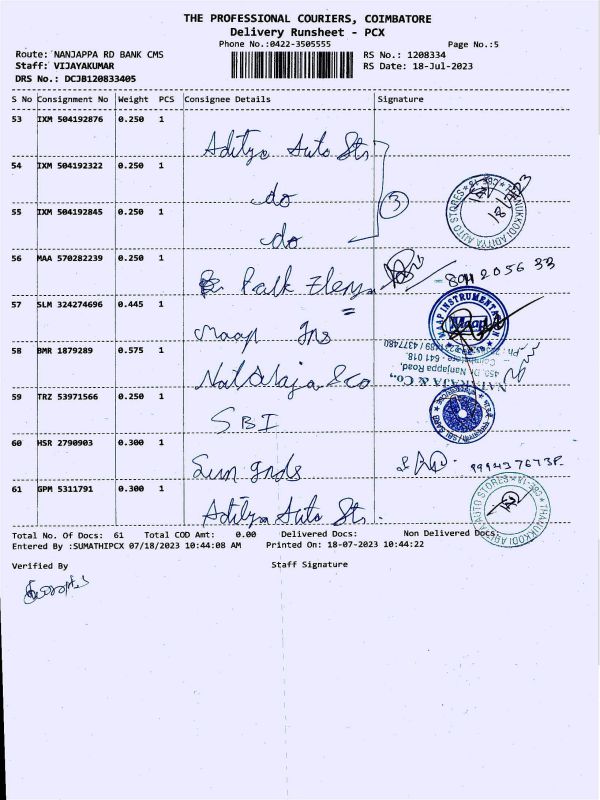 THE PROFESSIONAL COURIERS, COIMBATORE
Delivery Runsheet - PCX
Phone No.:0422-3505555 Page No.:5
Route: NANJAPPA RD BANK CMS RS No.: 1208334
Staff: VIJAYAKUMAR RS Date: 18-Jul-2023
DRS No.: DCJB120833405
S No Consignment No Weight PCS Consignee Details Signature
53 IXM 504192876 0.250 1
Aditya Auto Sts
54 IXM 504192322 0.250 1
do 3
55 IXM 504192845 0.250 1
do
THANUKKODI ADITYA AUTO STORES
56 MAA 570282239 0.250 1
Palk
57 SLM 324274696 0.445 1
Maap Ins
MAAP INSTRUMENTATION
Maap
58 BMR 1879289 0.575 1
Nataraja & Co
NATARAJA & Co.,
Nanjappa Road,
Coimbatore - 641 018.
59 TRZ 53971566 0.250 1
SBI
60 HSR 2790903 0.300 1
Sun Inds
61 GPM 5311791 0.300 1
Aditya Auto Sts.
THANUKKODI ADITYA AUTO STORES
Total No. Of Docs: 61 Total COD Amt: 0.00 Delivered Docs: Non Delivered Docs:
Entered By :SUMATHIPCX 07/18/2023 10:44:08 AM Printed On: 18-07-2023 10:44:22
Verified By Staff Signature